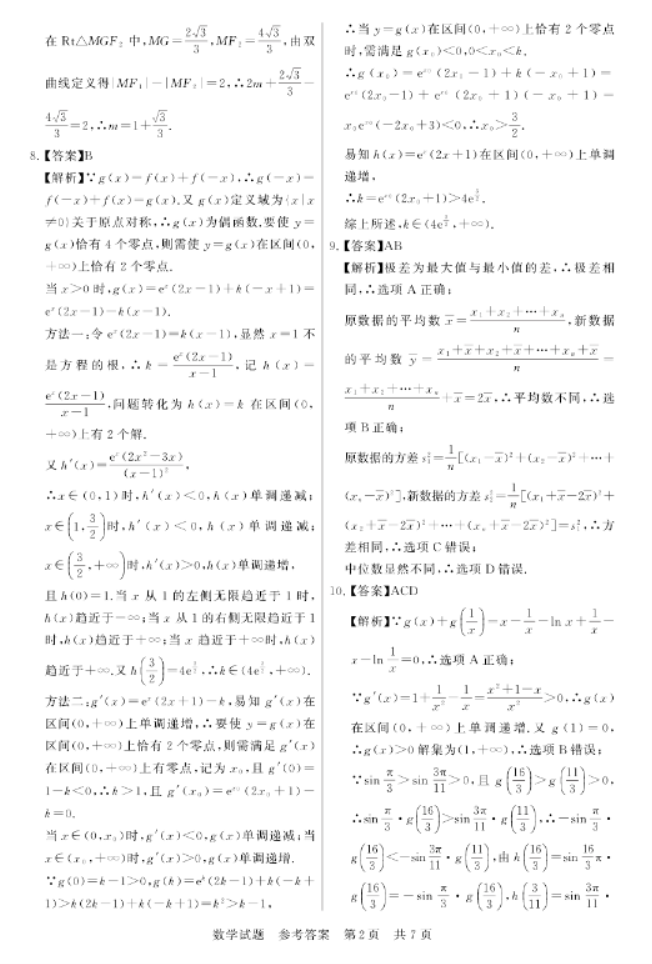 在 Rt△MGF₂ 中,MG=2√3/3,MF₂=4√3/3,由双
曲线定义得|MF₁|-|MF₂|=2,∴2m+2√3/3-
4√3/3=2,∴m=1+√3/3.
8.【答案】B
【解析】∵g(x)=f(x)+f(-x),∴g(-x)=
f(-x)+f(x)=g(x).又 g(x)定义域为{x|x
≠0}关于原点对称,∴g(x)为偶函数.要使 y=
g(x)恰有 4 个零点,则需使 y=g(x)在区间(0,
+∞)上恰有 2 个零点.
当 x>0 时,g(x)=eˣ(2x-1)+k(-x+1)=
eˣ(2x-1)-k(x-1).
方法一:令 eˣ(2x-1)=k(x-1),显然 x=1 不
是方程的根,∴k=eˣ(2x-1)/(x-1),记 h(x)=
eˣ(2x-1)/(x-1),问题转化为 h(x)=k 在区间(0,
+∞)上有 2 个解.
又 h′(x)=eˣ(2x²-3x)/(x-1)²,
∴x∈(0,1)时,h′(x)<0,h(x)单调递减;
x∈(1,3/2)时,h′(x)<0,h(x)单调递减;
x∈(3/2,+∞)时,h′(x)>0,h(x)单调递增,
且 h(0)=1.当 x 从 1 的左侧无限趋近于 1 时,
h(x)趋近于-∞;当 x 从 1 的右侧无限趋近于 1
时,h(x)趋近于+∞;当 x 趋近于+∞时,h(x)
趋近于+∞.又 h(3/2)=4e^(3/2),∴k∈(4e^(3/2),+∞).
方法二:g′(x)=eˣ(2x+1)-k,易知 g′(x)在
区间(0,+∞)上单调递增,∴要使 y=g(x)在
区间(0,+∞)上恰有 2 个零点,则需满足 g′(x)
在区间(0,+∞)上有零点,记为 x₀,且 g′(0)=
1-k<0,∴k>1,且 g′(x₀)=e^(x₀)(2x₀+1)-
k=0.
当 x∈(0,x₀)时,g′(x)<0,g(x)单调递减;当
x∈(x₀,+∞)时,g′(x)>0,g(x)单调递增.
∵g(0)=k-1>0,g(k)=eᵏ(2k-1)+k(-k+
1)>k(2k-1)+k(-k+1)=k²>k-1,
∴当 y=g(x)在区间(0,+∞)上恰有 2 个零点
时,需满足 g(x₀)<0,0<x₀<k.
∴g(x₀)=e^(x₀)(2x₀-1)+k(-x₀+1)=
e^(x₀)(2x₀-1)+e^(x₀)(2x₀+1)(-x₀+1)=
x₀e^(x₀)(-2x₀+3)<0,∴x₀>3/2.
易知 h(x)=eˣ(2x+1)在区间(0,+∞)上单调
递增,
∴k=e^(x₀)(2x₀+1)>4e^(3/2).
综上所述,k∈(4e^(3/2),+∞).
9.【答案】AB
【解析】极差为最大值与最小值的差,∴极差相
同,∴选项 A 正确;
原数据的平均数 x̄=(x₁+x₂+⋯+xₙ)/n,新数据
的平均数 ȳ=(x₁+x̄+x₂+x̄+⋯+xₙ+x̄)/n=
(x₁+x₂+⋯+xₙ)/n+x̄=2x̄,∴平均数不同,∴选
项 B 正确;
原数据的方差 s₁²=1/n[(x₁-x̄)²+(x₂-x̄)²+⋯+
(xₙ-x̄)²],新数据的方差 s₂²=1/n[(x₁+x̄-2x̄)²+
(x₂+x̄-2x̄)²+⋯+(xₙ+x̄-2x̄)²]=s₁²,∴方
差相同,∴选项 C 错误;
中位数显然不同,∴选项 D 错误.
10.【答案】ACD
【解析】∵g(x)+g(1/x)=x-1/x-ln x+1/x-
x-ln 1/x=0,∴选项 A 正确;
∵g′(x)=1+1/x²-1/x=(x²+1-x)/x²>0,∴g(x)
在区间(0,+∞)上单调递增.又 g(1)=0,
∴g(x)>0 解集为(1,+∞),∴选项 B 错误;
∵sin π/3>sin 3π/11>0,且 g(16/3)>g(11/3)>0,
∴sin π/3·g(16/3)>sin 3π/11·g(11/3),∴-sin π/3·
g(16/3)<-sin 3π/11·g(11/3),由 h(16/3)=sin 16/3π·
g(16/3)=-sin π/3·g(16/3),h(3/11)=sin 3π/11·
数学试题 参考答案 第 2 页 共 7 页